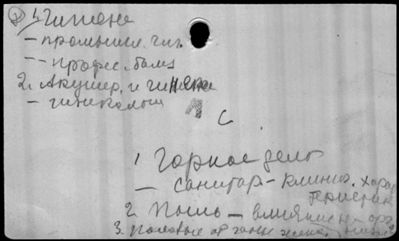 1. Гигиена
— промышл. гиг.
— профес. болез
2. Акушер. и гинеко
— гинекологи
С
1 Горное дело
— санитар — клинич. харак
теристик
2. Пыль — влияние на орг
3. Половые органы женск.